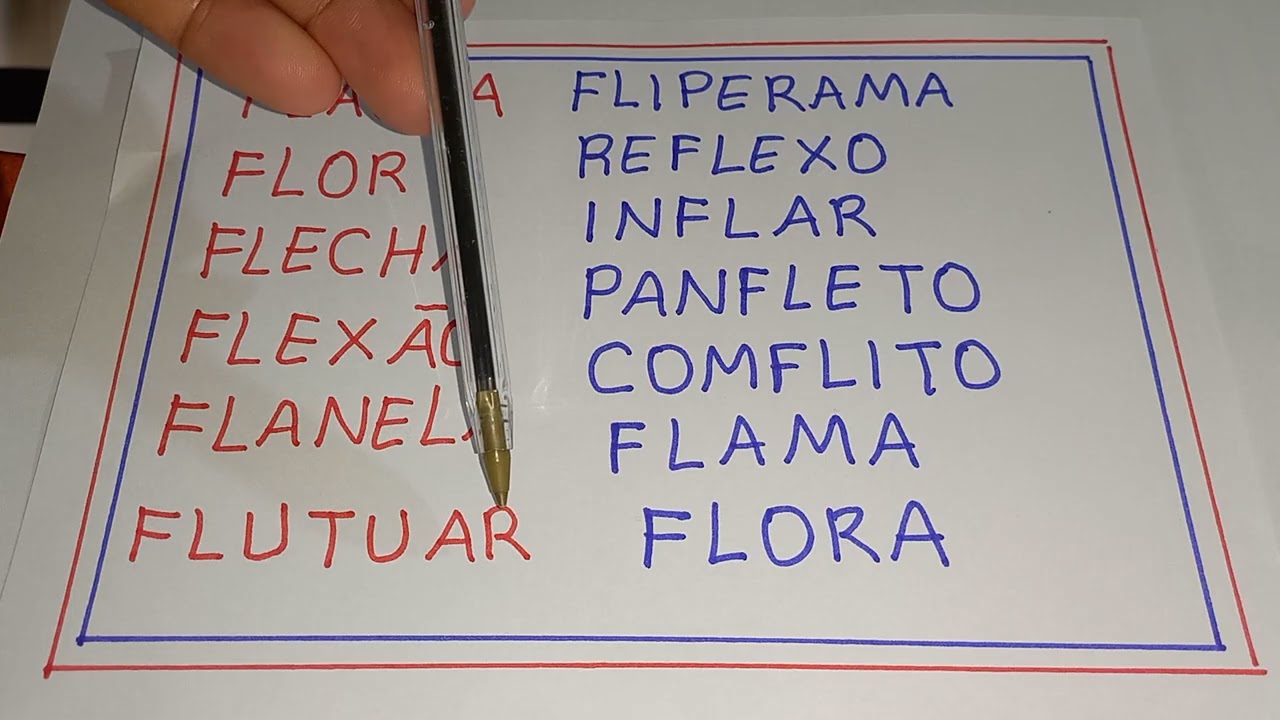 FLOR
FLECHA
FLEXÃO
FLANELA
FLUTUAR
FLIPERAMA
REFLEXO
INFLAR
PANFLETO
COMFLITO
FLAMA
FLORA